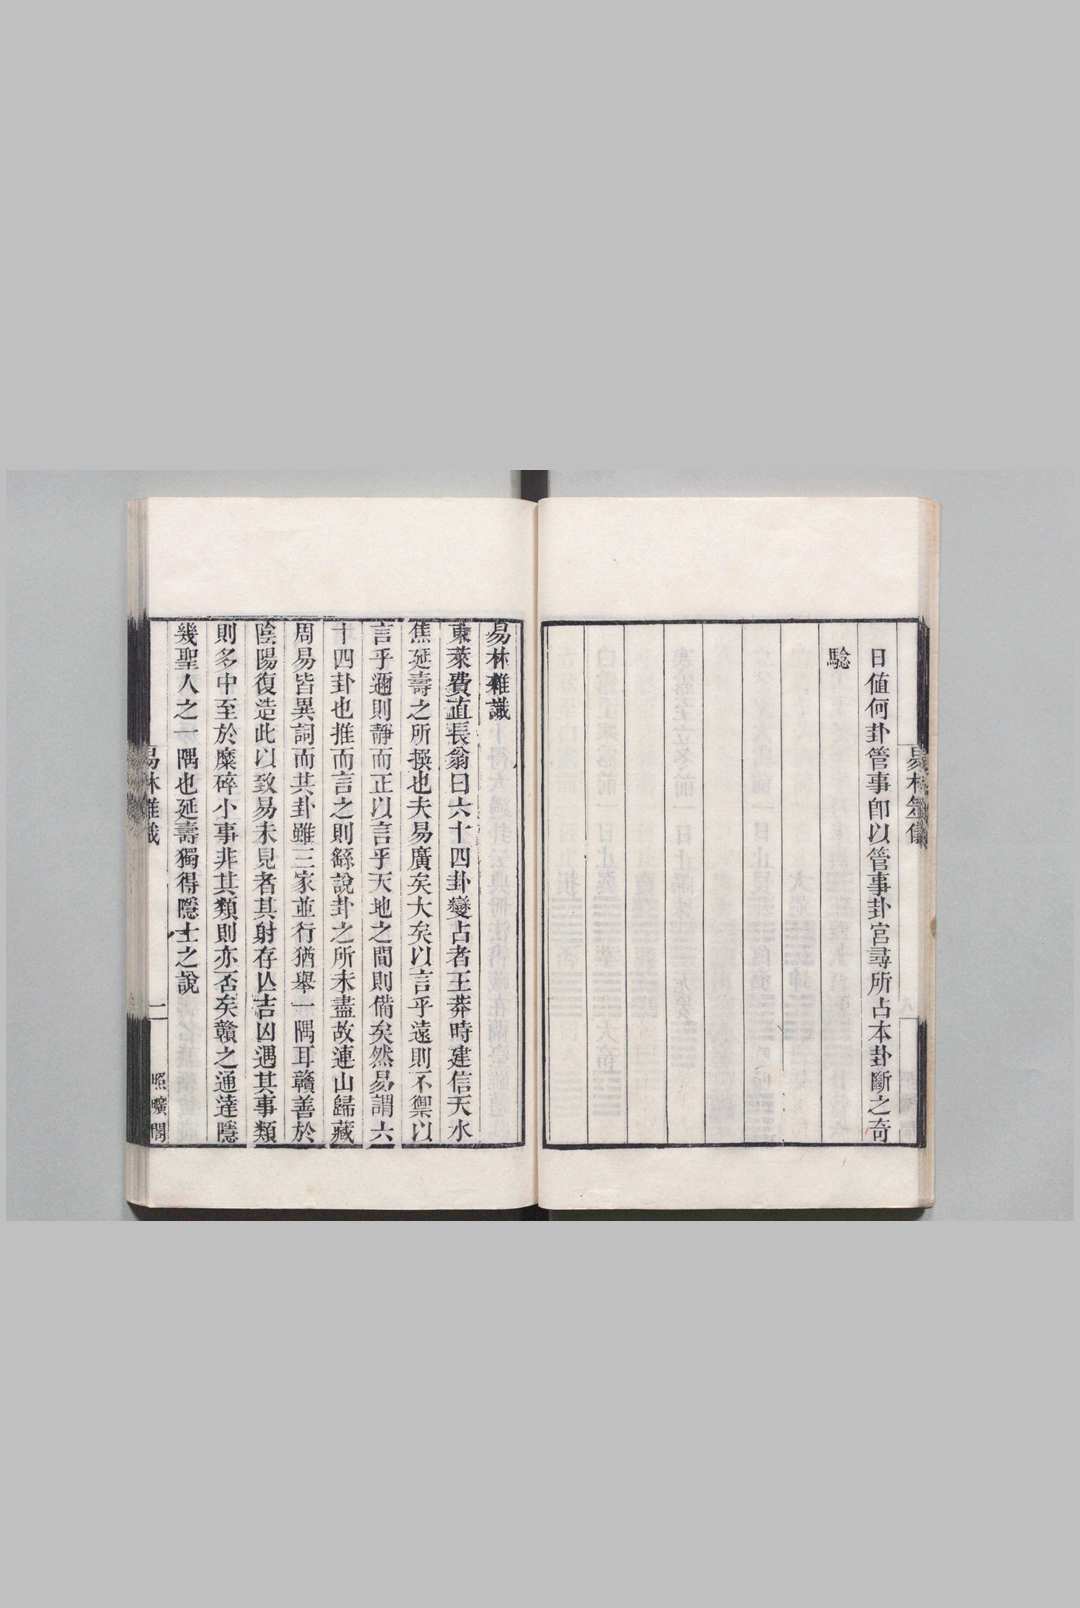 日值何卦管事卽以管事卦宮尋所占本卦斷之奇
驗
易林雜識
東萊費直長翁曰六十四卦變占者王莽時建信天水
焦延壽之所撰也夫易廣矣大矣以言乎遠則不禦以
言乎邇則靜而正以言乎天地之間則備矣然易謂六
十四卦也推而言之則繇說卦之所未盡故連山歸藏
周易皆異詞而其卦雖三家並行猶舉一隅耳贛善於
陰陽復造此以致易未見者其射存亾吉凶遇其事類
則多中至於糜碎小事非其類則亦否矣贛之通達隱
幾聖人之一隅也延壽獨得隱士之說
易林雜識
一
照曠閣